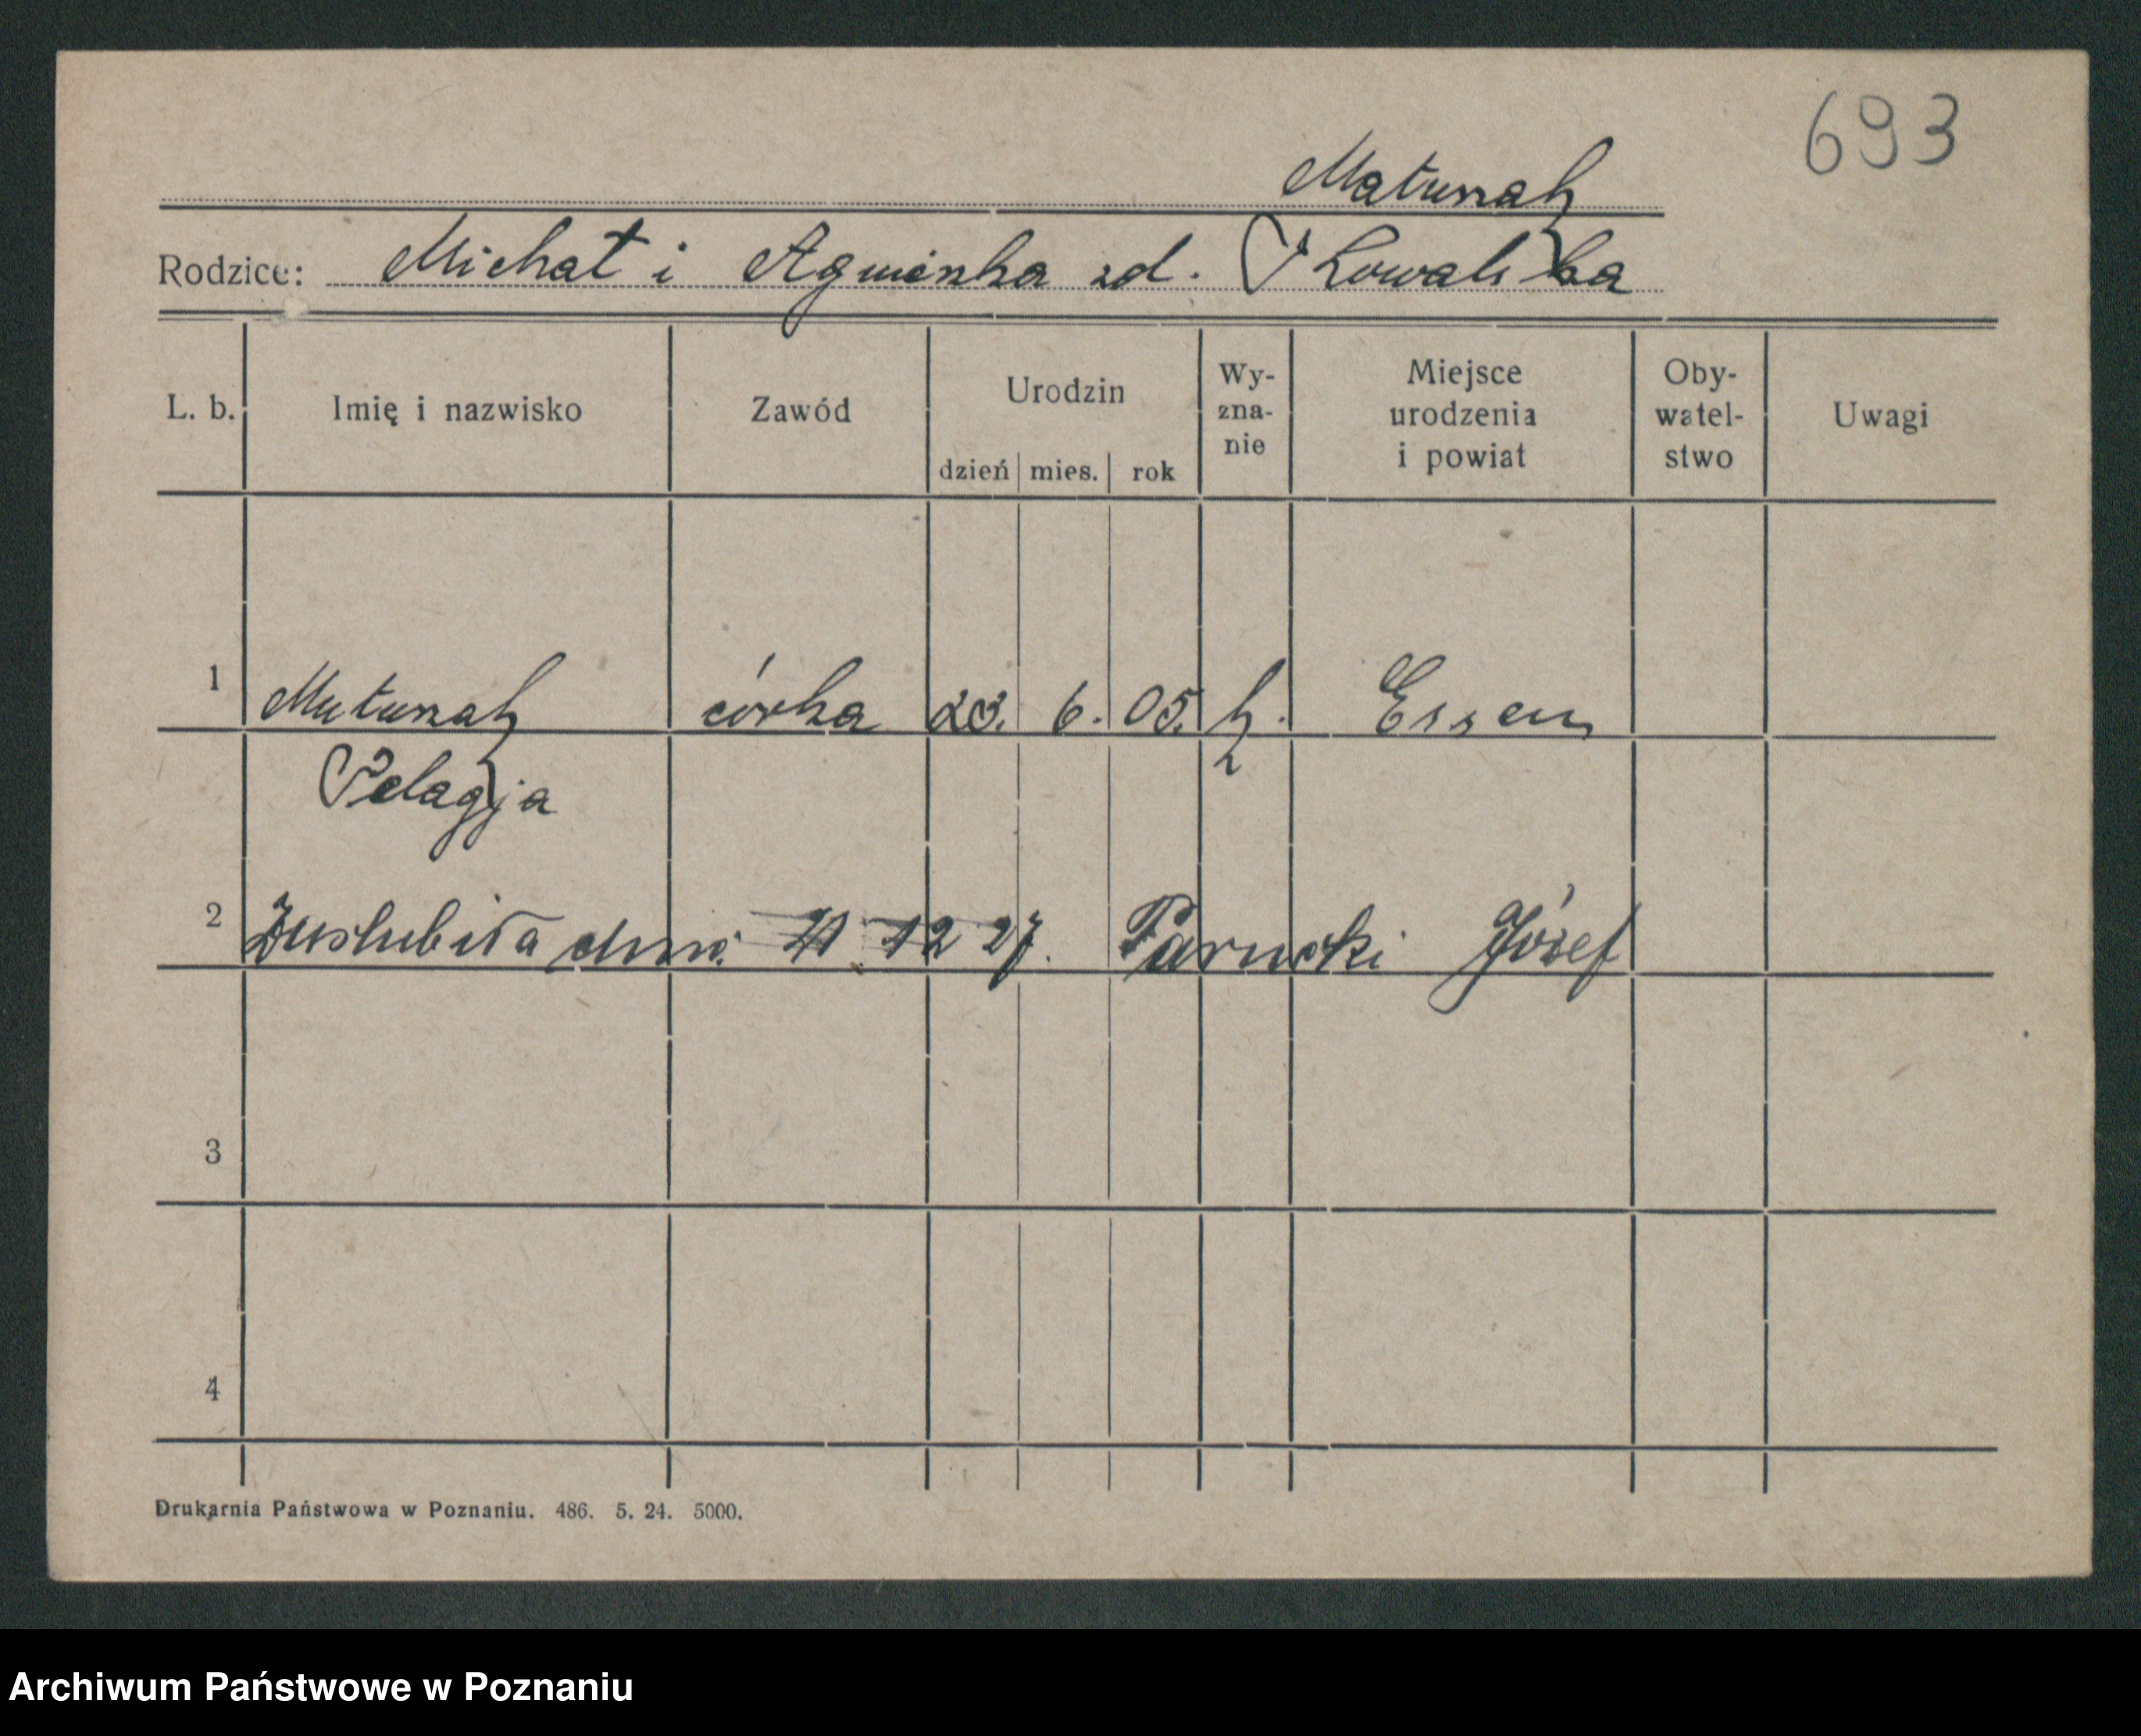 693
Matunak
Rodzice: Michał i Agnieszka zd. Kowalska
L. b. Imię i nazwisko Zawód Urodzin dzień mies. rok Wy-zna-nie Miejsce urodzenia i powiat Oby-watel-stwo Uwagi
1 Matunak córka 23. 6. 05. k. Essen
Pelagja
2 Zaślubiła dnia 12 27. Józef
3
4
Drukarnia Państwowa w Poznaniu. 486. 5. 24. 5000.
Archiwum Państwowe w Poznaniu